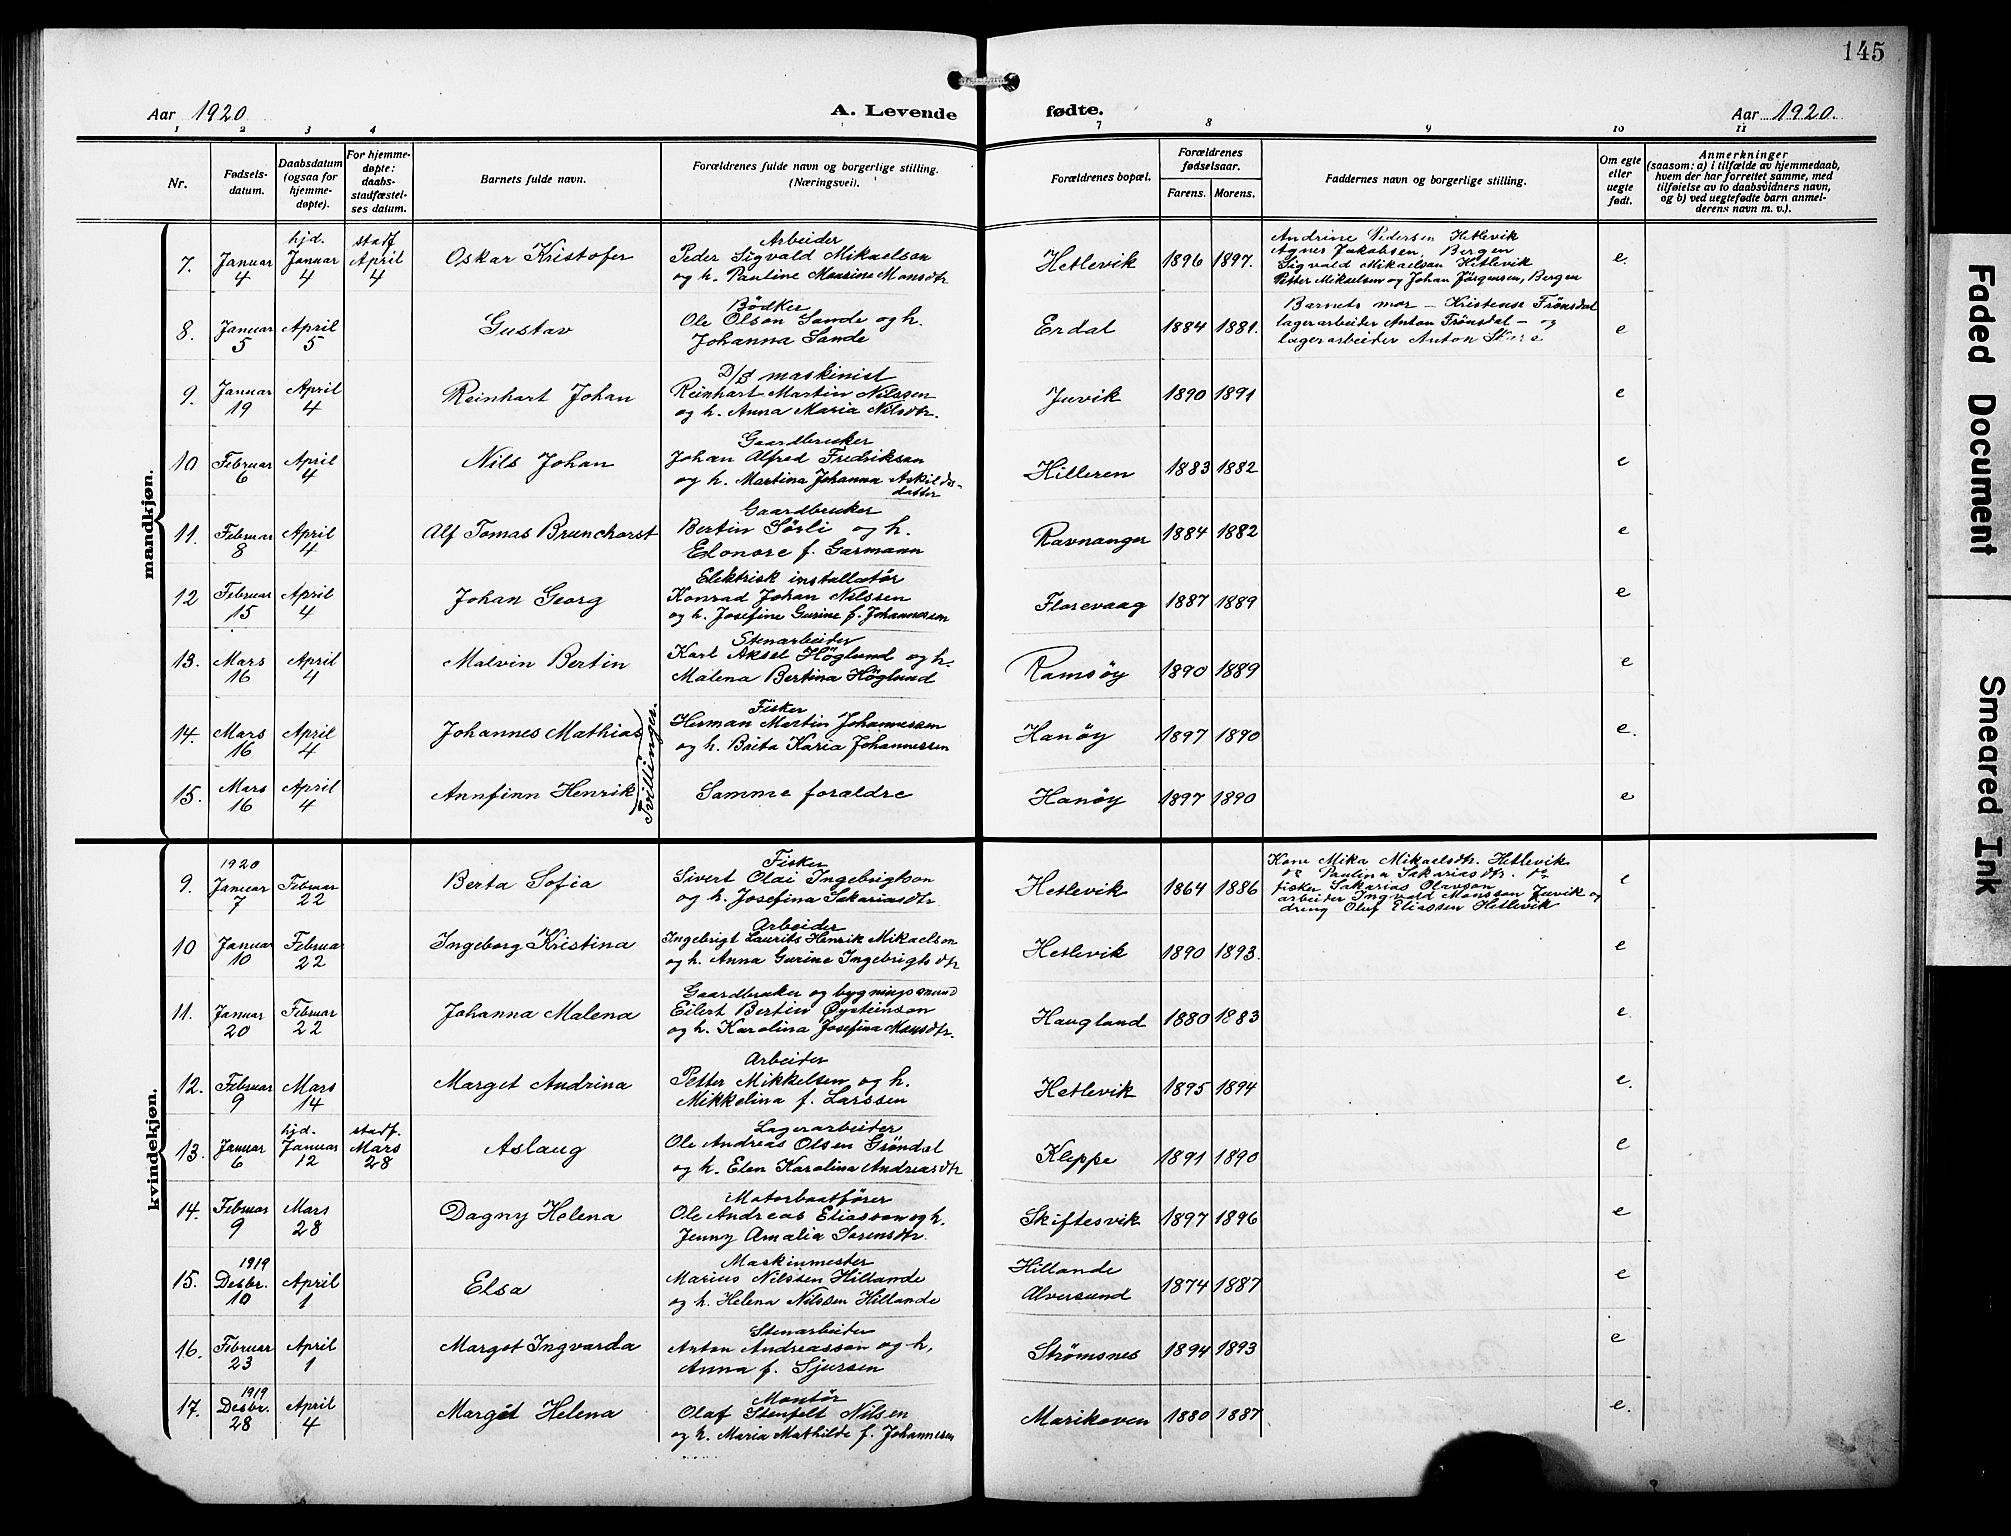 145
Aar 1920
A. Levende
fødte.
Aar 1920.
1 2 3 4 7 8 9 10 11
Nr.
Fødsels-
datum.
Daabsdatum
(ogsaa for
hjemme-
døpte).
For hjemme-
døpte:
daabs-
stadfæstel-
ses datum.
Barnets fulde navn.
Forældrenes fulde navn og borgerlige stilling.
(Næringsvei).
Forældrenes bopæl.
Forældrenes
fødselsaar.
Farens. Morens.
Faddernes navn og borgerlige stilling.
Om egte
eller
uegte
født.
Anmerkninger
(saasom: a) i tilfælde av hjemmedaab,
hvem der har forrettet samme, med
tilføielse av to daabsvidners navn,
og b) ved uegtefødte barn anmel-
derens navn m. v.).
mandkjøn.
7. Januar 4 hjd. Januar 4 stadf April 4 Oskar Kristofer
Arbeider
Peder Sigvald Mikaelson
og h. Pauline Monsine Monsdtr
Hetlevik 1896 1897. e.
Andrine Pedersen Hetlevik
Agnes Jakobsen Bergen
Sigvald Mikaelson Hetlevik
Petter Mikaelsen og Johan Jörgensen, Bergen
8. Januar 5 April 5 Gustav
Bödker
Ole Olson Sande og h.
Johanna Sande
Erdal 1884 1881. e
Barnets mor – Kristense Trönsdal
lagerarbeider Anton Trönsdal – og
lagerarbeider Anton
9. Januar 19 April 4 Reinhart Johan
D/S maskinist
Reinhart Martin Nilssen
og h. Anna Maria Nilsdtr.
Juvik 1890 1891 e
10 Februar 6 April 4 Nils Johan
Gaardbruker
Johan Alfred Fredrikson
og h. Martina Johanna Askilds-
datter
Hilleren 1883 1882 e
11. Februar 8 April 4 Alf Tomas Brunchorst
Gaardbruker
Bertin Sörli og h.
Elonore f. Garmann
Ravnanger 1884 1882 e
12 Februar 15 April 4 Johan Georg
Elektrisk installatør
Konrad Johan Nilssen
og h. Josefine Gurine f. Johannessen
Florevaag 1887 1889 e
13. Mars 16 April 4 Malvin Bertin
Stenarbeider
Karl Aksel Höglund og h.
Malena Bertina Höglund
Ramsöy 1890 1889 e
14. Mars 16 April 4 Johannes Mathias
Fisker
Herman Martin Johannessen
og h. Brita Karia Johannessen
Hanöy 1897 1890 e.
Tvillinger.
15. Mars 16 April 4 Annfinn Henrik
Samme forældre
Hanöy 1897 1890 e
kvindekjøn.
9. 1920 Januar 7 Februar 22 Berta Sofia
Fisker
Sivert Olai Ingebrigtson
og h. Josefina Sakariasdtr
Hetlevik 1864 1886 e
Kone Mika Mikaelsdtr. Hetlevik
do Paulina Sakariasdtr. do
fisker Sakarias Olavson
arbeider Ingvald Monsson Juvik og
dreng Oluf Eliassen Hetlevik
10 Januar 10 Februar 22 Ingeborg Kristina
Arbeider
Ingebrigt Laurits Henrik Mikaelson
og h. Anna Gurine Ingebrigtsdtr
Hetlevik 1890 1893. e
11. Januar 20 Februar 22 Johanna Malena
Gaardbruker og bygningsmand
Eilert Bertin Øysteinson
og h. Karolina Josefina Monsdtr.
Haugland 1880 1883 e.
12. Februar 9 Mars 14 Marget Andrina
Arbeider
Petter Mikkelsen og h.
Mikkelina f. Larssen
Hetlevik 1895 1894 e.
13. Januar 6 hjd. Januar 12 stadf. Mars 28 Aslaug
Lagerarbeider
Ole Andreas Olsen Gröndal
og h. Elen Karolina Andreasdtr
Kleppe 1891 1890 e
14. Februar 9 Mars 28 Dagny Helena
Motorbaatfører
Ole Andreas Eliasson og h.
Jenny Amalia Sorensdtr.
Skiftesvik 1897 1896 e
15. 1919 Desbr. 10 April 1 Elsa
Maskinmester
Marius Nilssen Hillande
og h. Helena Nilssen Hillande
Hillande
Alversund 1874 1887 e
16. Februar 23 April 1 Margot Ingvarda
Stenarbeider
Anton Andreasson og h.
Anna f. Sjursen
Strömsnes 1894 1893 e
17. 1919 Desbr. 28 April 4 Margit Helena
Montør
Olaf Stenfelt Nilsen
og h. Maria Mathilde f. Johannesen
Marikoven 1880 1887 e.
Faded Document
Smeared Ink